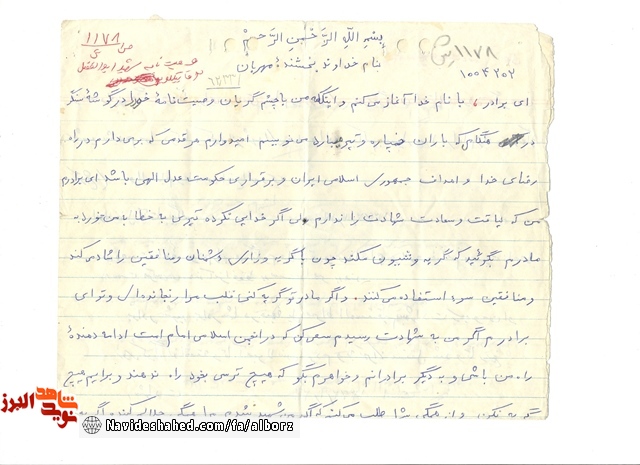 بِسْمِ اللَّهِ الرَّحْمٰنِ الرَّحیمْ
بنام خداوند بخشندهٔ مهربان
۱۱۷۸ ص
۱۱۷۸
وصیت نامه شهید ابوالفضل
۱۰۰۴۲۰۲
ای برادر، با نام خدا آغاز می کنم و اینکه من با چشم گریان وصیت نامهٔ خود را در گوشهٔ سنگر
در هنگامی که باران خمپاره و تیر میبارد می نویسم امیدوارم هر قدمی که بر می دارم در راه
رضای خدا و اهداف جمهوری اسلامی ایران و برقراری حکومت عدل الهی باشد ای برادرم
من که لیاقت و سعادت شهادت را ندارم ولی اگر خدایی نکرده تیری به خطا با من خورد به
مادرم بگوئید که گریه و شیون مکند چون با گریه و زاری دشمنان و منافقین را شاد می کند
و منافقین سوء استفاده می کنند. و اگر مادر تو گریه کنی قلب مرا رنجانده ای و تو ای
برادرم اگر من به شهادت رسیدم سعی کن که در انجمن اسلامی امام است ادامه دهندهٔ
راه من باشی و به دیگر برادرانم و خواهرم بگو که هیچ ترسی بخود راه ندهند و برایم هیچ
گریه نکنند و از همگی شما طلب می کنم که اگر من شهید شدم مرا همگی حلال کنند و اگر
نوید شاهد البرز
Navideshahed.com/fa/alborz